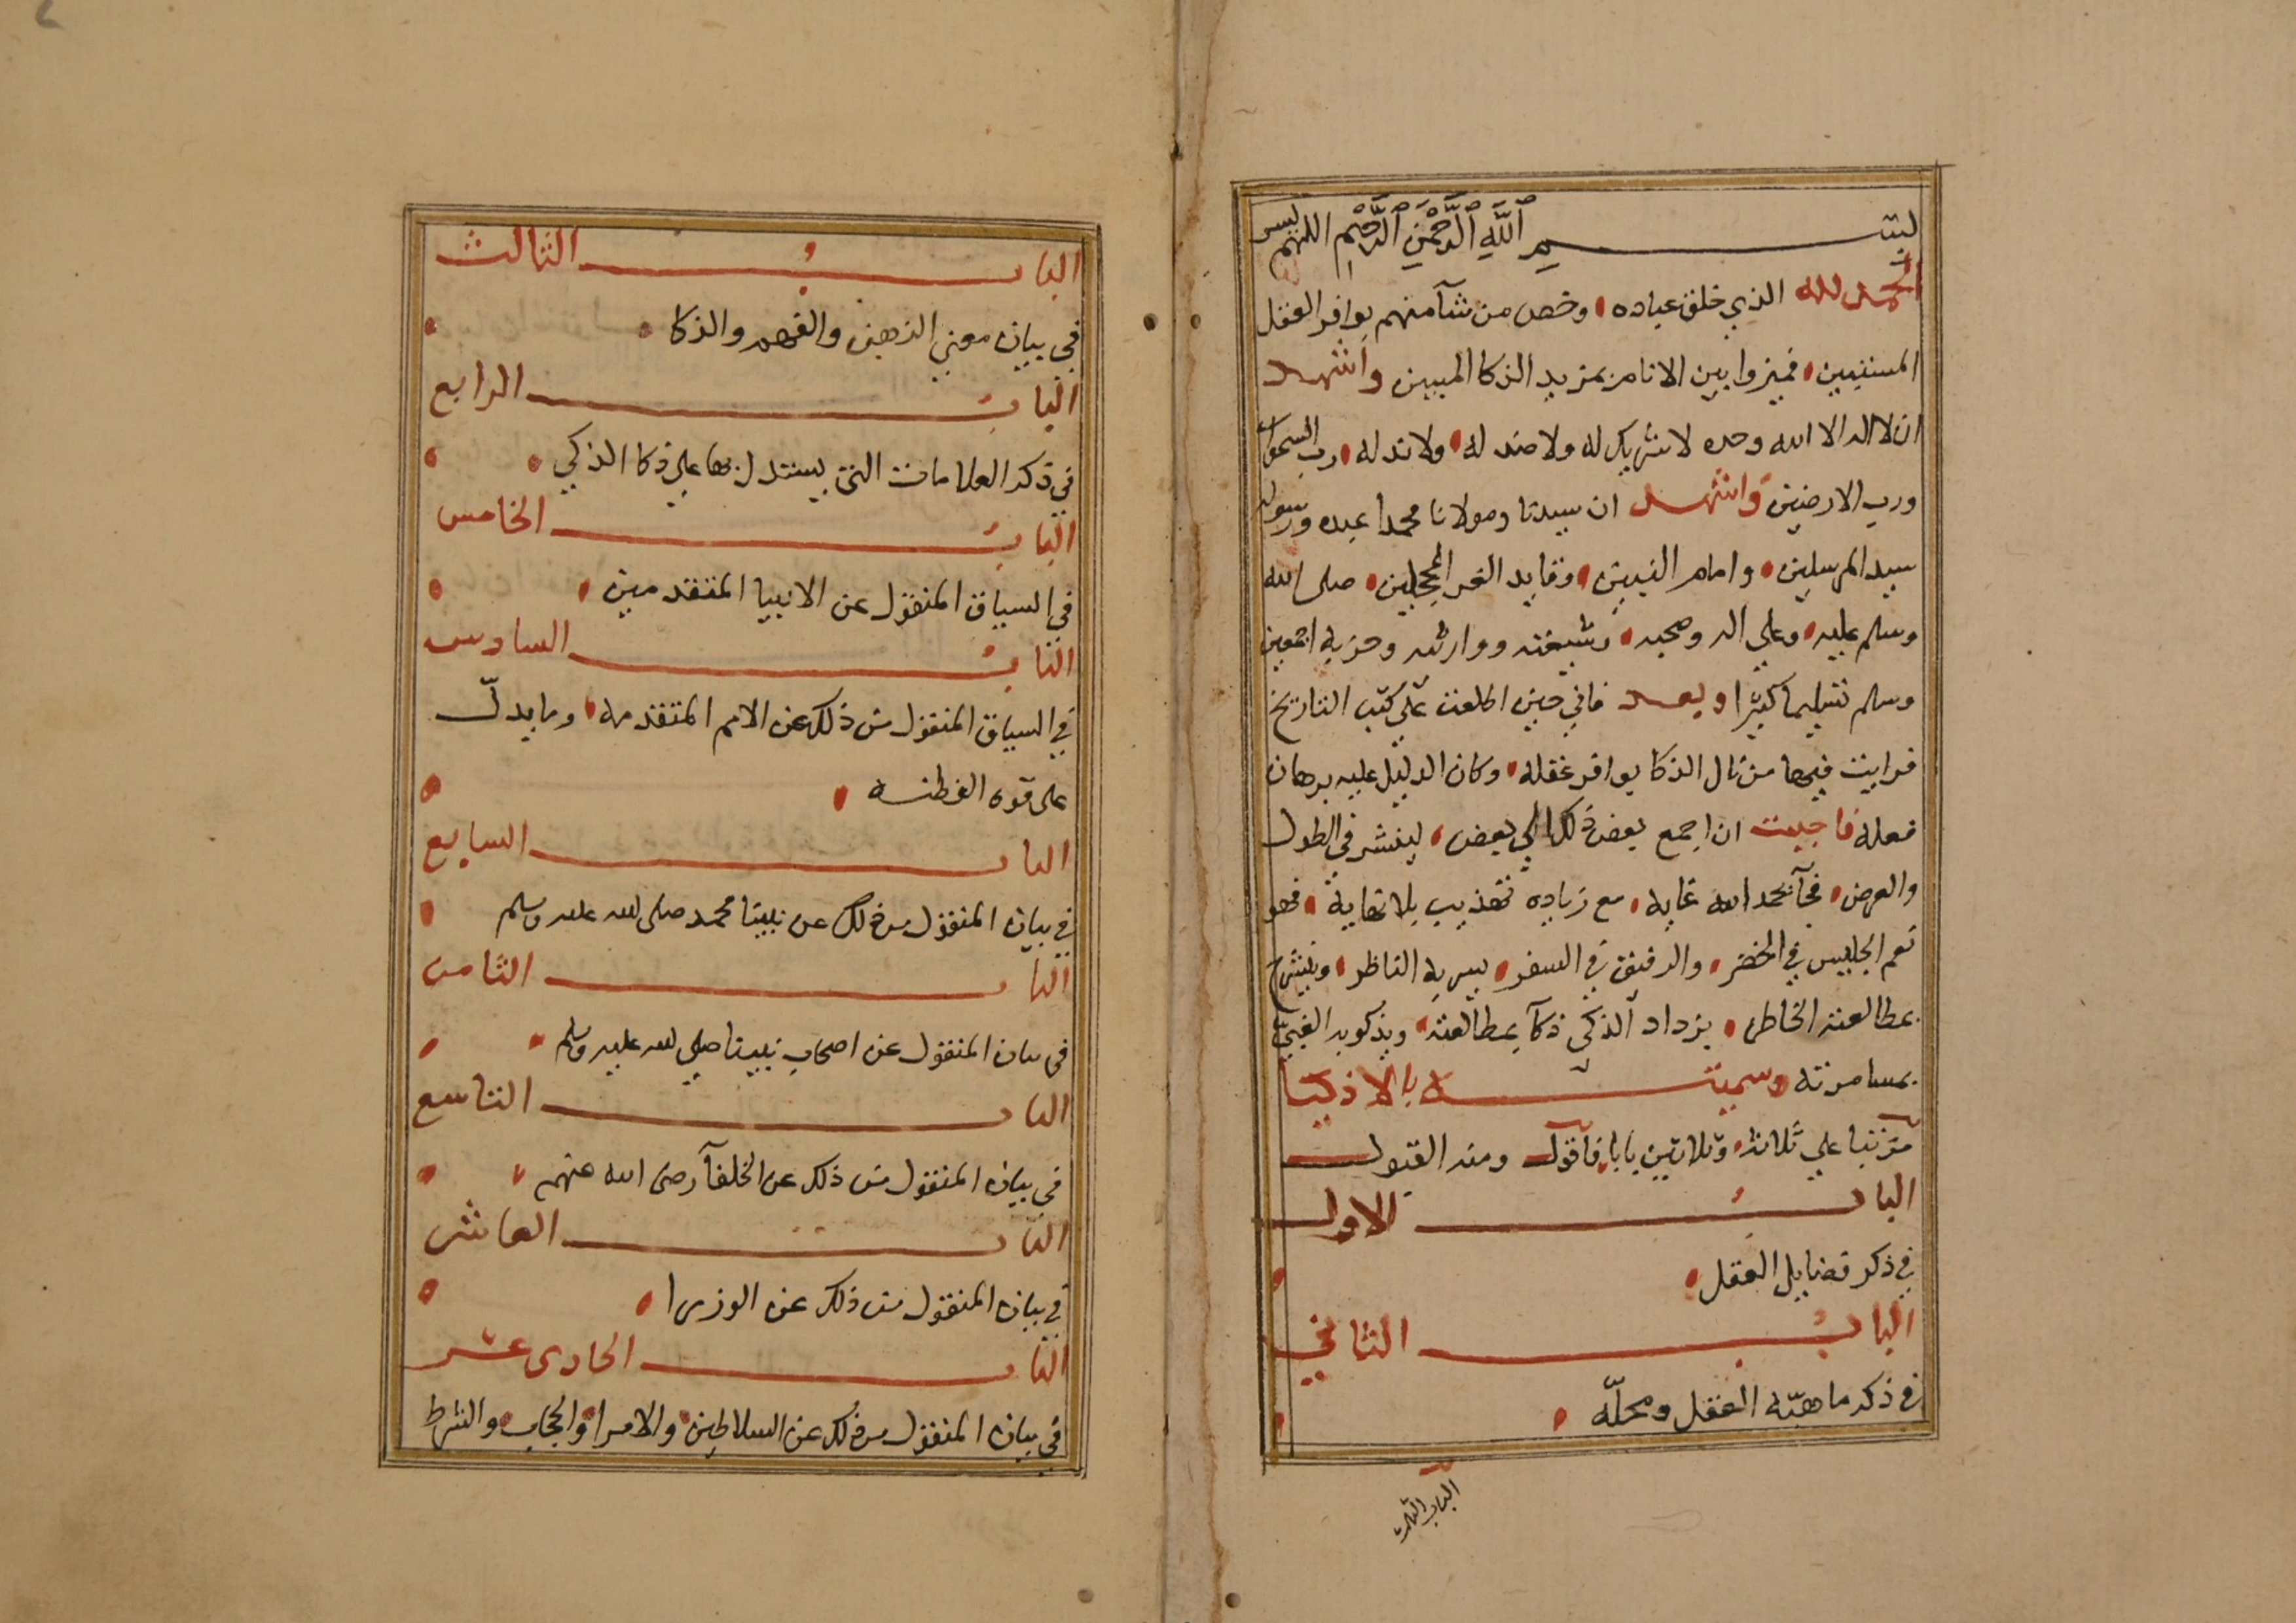 بسم الله الرحمن الرحيم اللهم يسر
الحمد لله الذي خلق عباده، وخص من شآ منهم بوافر العقل
المستبين، فميزوا بين الانام بمزيد الذكا المبين واشهد
ان لا اله الا الله وحده لا شريك له ولا ضد له، ولا ند له، رب السموات
ورب الارضين واشهد ان سيدنا ومولانا محمدا عبده ورسوله
سيد المرسلين، وامام النبيين، وقايد الغر المحجلين، صلى الله
وسلم عليه، وعلي اله وصحبه، وشيعته ووارثه وحزبه اجمعين
وسلم تسليما كثيرا وبعد فاني حين اطلعت علي كتب التاريخ
فرايت فيها من نال الذكا بوافر عقله، وكان الدليل عليه برهان
فعله فاحببت ان اجمع بعض ذلك الي بعض، لينشر في الطول
والعرض، فجآ بحمد الله غايه، مع زياده تهذيب بلا نهاية، فهو
نعم الجليس في الحضر، والرفيق في السفر، يسر به الناظر، وينشرح
بمطالعته الخاطر، يزداد الذكي ذكآ بمطالعته، ويذكو به الغبي
بمسامرته وسميته بالاذكيا
مرتبا علي ثلاثه، وثلاثين بابا، فاقول ومنه القبول
الباب الاول
في ذكر فضايل العقل،
الباب الثاني
في ذكر ماهيّه العقل ومحلّه،
الباب الثالث
الباب الثالث
في بيان معني الذهن والفهم والذكا،
الباب الرابع
في ذكر العلامات التي يستدل بها علي ذكا الذكي،
الباب الخامس
في السياق المنقول عن الانبيا المتقدمين،
الباب السادس
في السياق المنقول من ذلك عن الامم المتقدمه، وما يدلّ
على قوه الفطنه،
الباب السابع
في بيان المنقول من ذلك عن نبينا محمد صلى الله عليه وسلم
الباب الثامن
في بيان المنقول عن اصحاب نبينا صلي الله عليه وسلم،
الباب التاسع
في بيان المنقول من ذلك عن الخلفآ رضى الله عنهم،
الباب العاشر
في بيان المنقول من ذلك عن الوزرا،
الباب الحادى عشر
في بيان المنقول من ذلك عن السلاطين، والامرا، والحجاب، والشرط